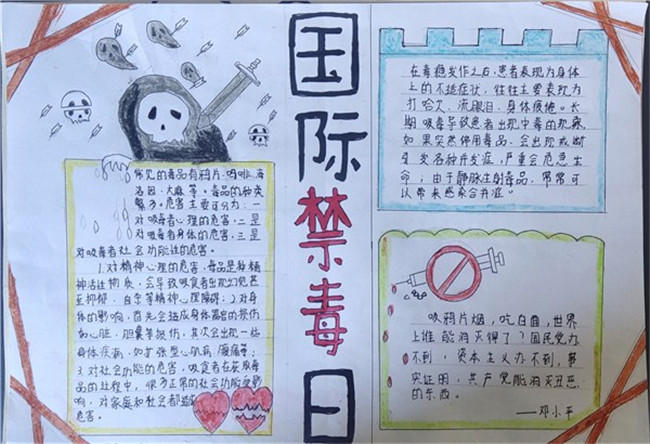 国
际
禁
毒
日
常见的毒品有鸦片、吗啡、海
洛因、大麻等。毒品的种类
繁多。危害主要可分为：一
对吸毒者心理的危害，二是
对吸毒者身体的危害，三是
对吸毒者社会功能性的危害。
1.对精神心理的危害，毒品是种精
神活性物质，会导致吸食者出现幻觉甚
至抑郁、自杀等精神心理障碍；2.对身
体的影响，首先会造成身体器官的损伤
如心脏、胆囊等损伤，其次会出现一些
身体疾病，如扩张型心肌病、腹痛等；
3.对社会功能的危害，吸食者在获取毒
品的过程中，很多正常的社会功能受影
响，对家庭和社会都造
危害。
在毒瘾发作之后，患者表现为身体
上的不适症状，往往主要表现为
打哈欠、流眼泪、身体疲倦。长
期吸毒导致患者出现中毒的现象
如果突然停用毒品，会出现戒断
引发各种并发症，严重会危急生
命；由于静脉注射毒品，常常可
以带来感染合并症。
吸鸦片烟，吃白面，世界
上谁能消灭得了？国民党办
不到，资本主义办不到，事
实证明，共产党能消灭丑恶
的东西。
——邓小平